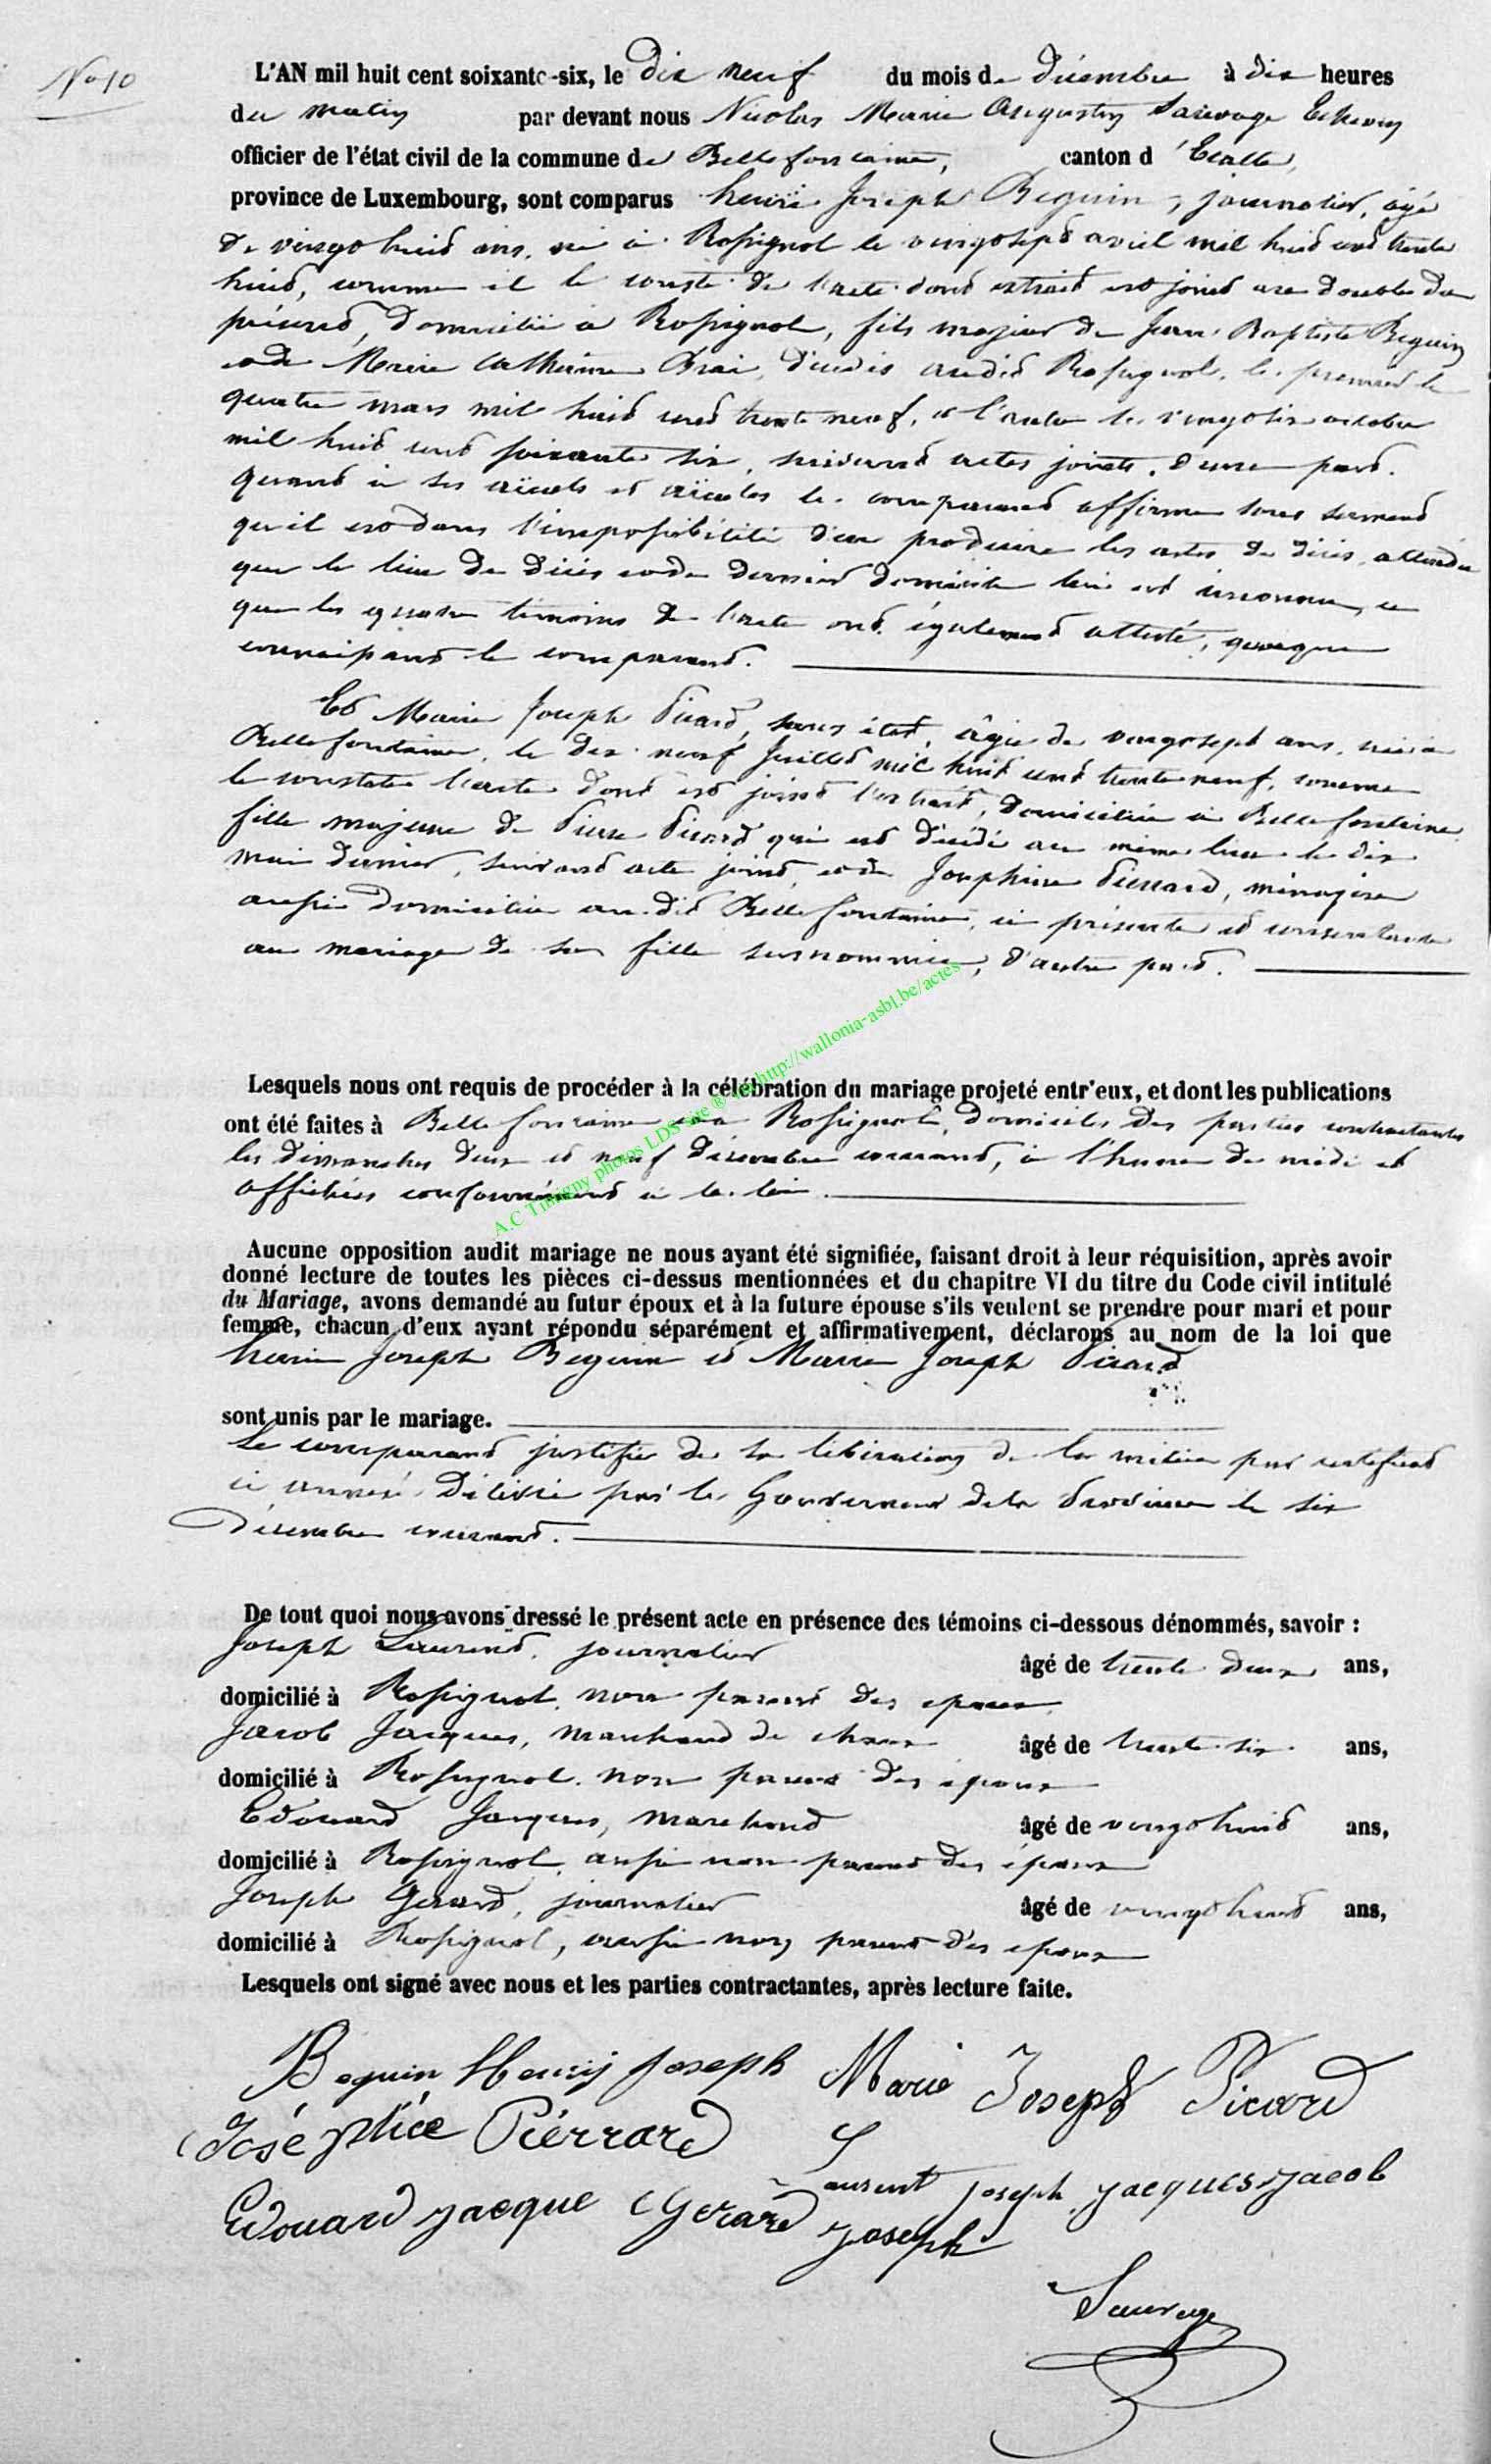 No 10
L'AN mil huit cent soixante-six, le dix neuf du mois de décembre à dix heures
du matin par devant nous Nicolas Marie Augustin Sauvage Echevin
officier de l'état civil de la commune de Bellefontaine, canton d'Etalle,
province de Luxembourg, sont comparus henri Joseph Beguin, journalier, âgé
de vingt huit ans, né à Rossignol le vingt sept avril mil huit cent trente
huit, comme il le conste de l'acte dont extrait est joint au double du
présent, domicilié à Rossignol, fils majeur de Jean Baptiste Beguin
et de Marie Catherine décédés audit Rossignol, le premier le
quatre mars mil huit cent trente neuf, et l'autre le vingt six octobre
mil huit cent soixante six, suivant actes joints, d'une part.
quant à ses aïeuls et aïeules le comparant affirme sous serment
qu'il est dans l'impossibilité d'en produire les actes de décès, attendu
que le lieu de décès et de dernier domicile lui est inconnu, ce
que les quatre témoins de l'acte ont également attesté, quoique
connaissant le comparant.
Et Marie Joseph Picard, sans état, âgée de vingt sept ans, née à
Bellefontaine, le dix neuf Juillet mil huit cent trente neuf, comme
le constate l'acte dont est joint l'extrait, domiciliée à Bellefontaine
fille majeure de Pierre Picard qui est décédé au même lieu le dix
mai dernier, suivant acte joint, et de Josephine Pierrard, ménagère
aussi domiciliée audit Bellefontaine, ci présente et consentante
au mariage de sa fille susnommée, d'autre part.
A.C Tintigny photos LDS site ® via http://wallonia-asbl.be/actes
Lesquels nous ont requis de procéder à la célébration du mariage projeté entr'eux, et dont les publications
ont été faites à Bellefontaine et à Rossignol, domiciles des parties contractantes
les dimanches deux et neuf décembre courant, à l'heure de midi et
affichées conformément à la loi.
Aucune opposition audit mariage ne nous ayant été signifiée, faisant droit à leur réquisition, après avoir
donné lecture de toutes les pièces ci-dessus mentionnées et du chapitre VI du titre du Code civil intitulé
du Mariage, avons demandé au futur époux et à la future épouse s'ils veulent se prendre pour mari et pour
femme, chacun d'eux ayant répondu séparément et affirmativement, déclarons au nom de la loi que
henri Joseph Beguin et Marie Joseph Picard
sont unis par le mariage.
Le comparant justifie de sa libération de la milice par certificat
ci annexé délivré par le Gouverneur de la Province le six
décembre courant.
De tout quoi nous avons dressé le présent acte en présence des témoins ci-dessous dénommés, savoir :
Joseph Laurent, journalier âgé de trente deux ans,
domicilié à Rossignol, non parent des époux
Jacob Jacques, marchand de chaux âgé de trente six ans,
domicilié à Rossignol, non parent des époux
Edouard Jacques, marchand âgé de vingt huit ans,
domicilié à Rossignol, aussi non parent des époux
Joseph Gerard, journalier âgé de vingt huit ans,
domicilié à Rossignol, aussi non parent des époux
Lesquels ont signé avec nous et les parties contractantes, après lecture faite.
Beguin Henry Joseph Marie Joseph Picard
Pièrrard Laurent Joseph Jacques Jacob
Edouard jacque Gerard Joseph
Sauvage